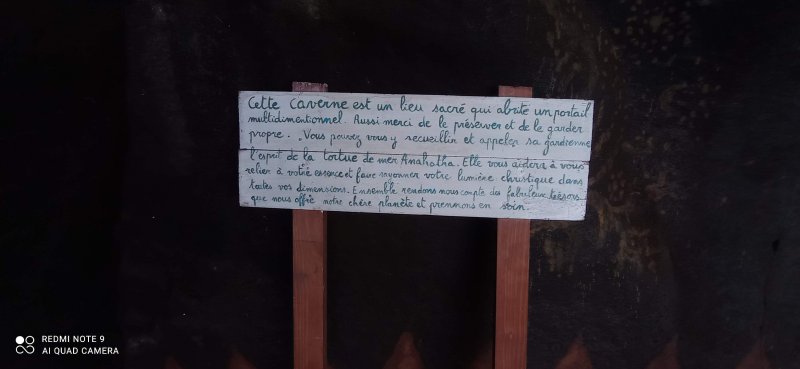 Cette Caverne est un lieu sacré qui abrite un portail
multidimentionnel. Aussi merci de le préserver et de le garder
propre. Vous pouvez vous y recueillir et appeler sa gardienne
l'esprit de la tortue de mer Anahatha. Elle vous aidera à vous
relier à votre essence et faire rayonner votre lumière christique dans
toutes vos dimensions. Ensemble rendons nous compte des fabuleux trésors
que nous offre notre chère planète et prennons en soin.
REDMI NOTE 9
AI QUAD CAMERA